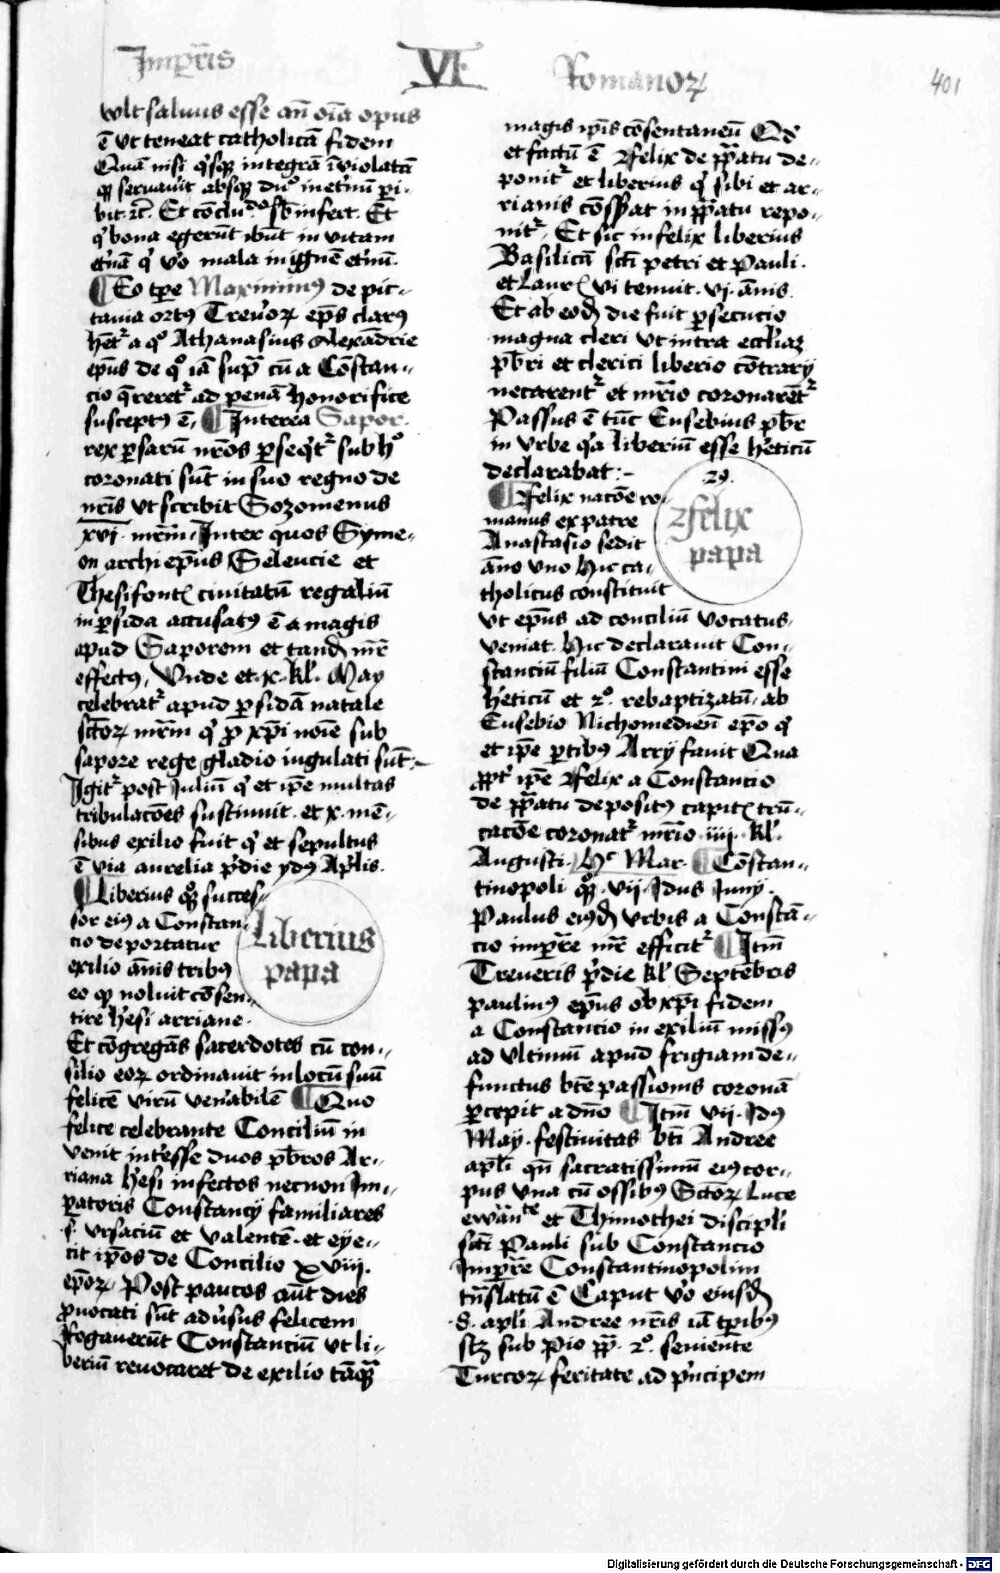 Imp̄r̄is VI Romanoꝝ 401
vult saluus esse an̄ oīa opus
ē vt teneat catholicā fidem
Quā nisi q̇sqꝫ integrā īviolatā
qꝫ seruauit absqꝫ du᷒ inet̄nū p̄i
bit ⁊c̄. Et cōclu.do s̄b infert. Et
q̇ bona egerūt ibūt in vitam
et̄nā q̇ vo mala in ignē et̄nū.
Eo tp̄e Maximinꝰ de pic-
tauia ortꝰ Treuoꝝ ep̄s clarꝰ
het̄ a qͦ Athanasius Alexādrie
ep̄us de qͦ iā sup̄ cū a Cōstan-
cio q̄reret̄ ad penā honorifice
susceptꝰ ē. Interea Sapor
rex p̄sarū nr̄os p̄seqt̄ sub hͦ
coronati sūt in suo regno de
nr̄is vt scribit Sozomenus
xvi. mr̄m. Inter quos Syme-
on archiep̄us Seleucie et
Thesifont̄ ciuitatū regaliū
in p̄sida accusatꝰ ē a magis
apud Saporem et tand̄ mr̄
effectꝰ. Vnde et x. kl̄. May
celebrat̄ apud p̄sidā natale
sc̄toꝝ mr̄m q̇ p̄ xp̄i noīe sub
sapore rege gladio iugulati sūt:-
Igit̄ post Juliū q̇ et ip̄e multas
tribulacōes sustinuit. et x. mē-
sibus exilio fuit q̇ et sepultus
ē via aurelia p̄die ydꝰ Ap̄lis.
Liberius qꝫ succes-
sor eiꝰ a Constan-
cio deportatur
exilio ānis tribꝰ
eo qꝫ noluit cōsen-
tire h̄esi arriane.
Liberius
papa
Et cōgregās sacerdotes cū con-
silio eoꝝ ordinauit in locū suū
felicē virū ven̄abilē Quo
felice celebrante Conciliū in
venit int̄esse duos p̄bros Ar-
riana h̄esi infectos necnon Im-
peratoris Constancÿ familiares
.s. vrsaciū et valentē. et eÿe-
cit ip̄os de Concilio xviij.
ep̄oꝝ. Post paucos aūt dies
p̄uocati sūt adūsus felicem
Rogauerūt Constanciū vt li-
beriū reuocaret de exilio tāqꝫ
magis ip̄is cōsentaneū Qd̄
et factū ē. Felix de pp̄atu de-
ponit̄ et liberius q̇ sibi et ar-
rianis cōsp̄at in pp̄atu repo-
nit̄. Et sic infelix liberius
Basilicā sc̄ti petri et Pauli
et Laur̄ vi tenuit. vi. ānis.
Et ab eod̄ die fuit p̄secucio
magna cleri vt intra eccl̄iaz
p̄bri et clerici liberio cōtrarÿ
necarent̄ et mr̄io coronarēt̄
Passus ē tūc Eusebius p̄br
in vrbe q̇a liberiū esse h̄eticū
declarabat:-
Felix nacōe ro-
manus ex patre
Anastasio sedit
āno vno hic ca-
tholicus constituit
29.
Felix
papa
vt ep̄us ad conciliū vocatus.
veniat. Hic declarauit Con-
stanciū filiū Constantini esse
h̄eticū et 2ͦ. rebaptizatū. ab
Eusebio Nichomedien̄ ep̄o q̇
et ip̄e p̄tibꝰ Arrÿ fauit Qua
pp̄t̄ ip̄e Felix a Constancio
de pp̄atu depositꝰ capit̄ trū-
cacōe coronat̄ mr̄io. iiij. kl̄.
Augusti. Hͨ Mar. Cōstan-
tinopoli qꝫ. vij. Idus Junÿ.
Paulus eiꝰd̄ vrbis a Constā-
cio imp̄re mr̄ efficit̄ Itm̄
Treueris p̄die kl̄ Septēbris
paulinꝰ ep̄us ob xp̄i fidem
a Constancio in exiliū missꝰ
ad vltimū apud frigiam de-
functus bt̄e passionis coronā
p̄cepit a dn̄o Itm̄ vij. Idꝰ
Maÿ. festiuitas bt̄i Andree
apl̄i qn̄ sacratissimū eiꝰ cor-
pus vna cū ossibꝰ Sc̄toꝝ Luce
ewāte et Thimothei discipl̄i
sc̄ti Pauli sub Constancio
Imp̄re Constantinopolim
tn̄slatū ē Caput vo eiusd̄
.S. apl̄i Andree nr̄is iā tp̄ibꝰ
scꝫ sub Pio pp̄. 2ͦ. seuiente
Turcoꝝ feritate ad p̄ncipem
Digitalisierung gefördert durch die Deutsche Forschungsgemeinschaft - DFG